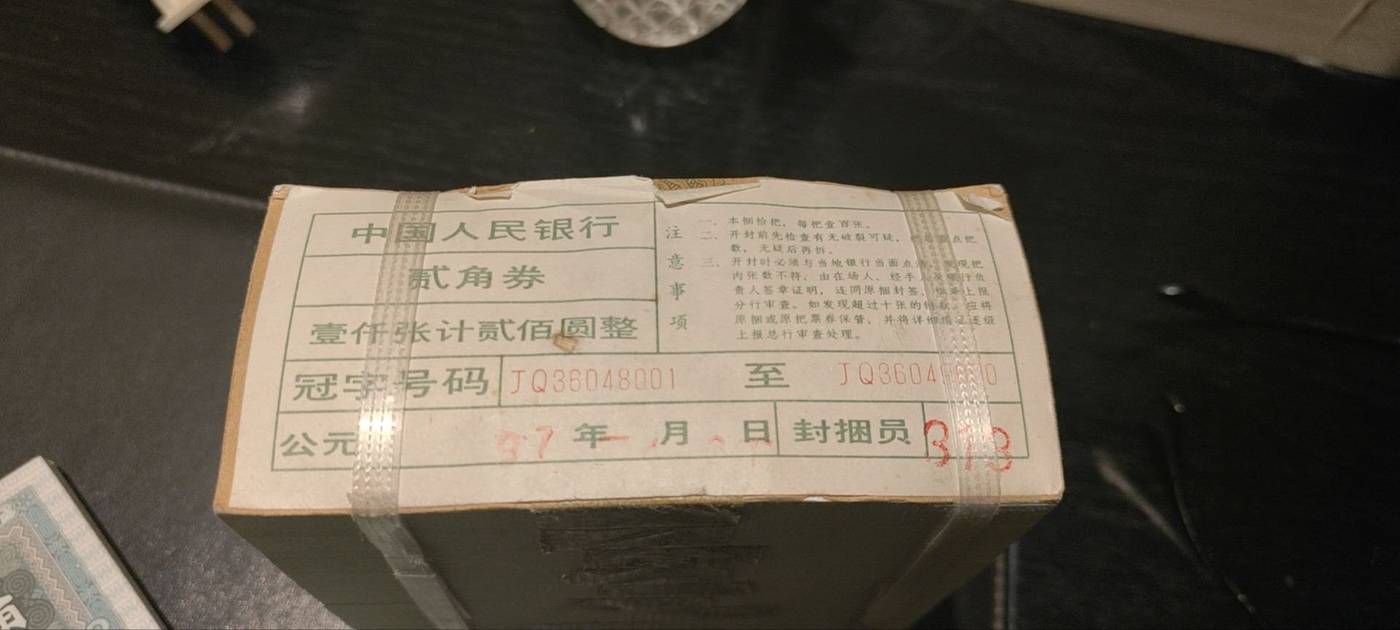 中国人民银行
贰角券
壹仟张计贰佰圆整
注意事项
一、本捆恰把，每把壹百张。
二、开封前先检查有无破裂可疑，点把
数，无疑后再拆。
三、开封时必须与当地银行当面点，发现把
内张数不符，由在场人、经手行负
责人签章证明，连同原捆封签，上报
分行审查。如发现超过十张的，应将
原捆或原把票券保管，并将详细逐级
上报总行审查处理。
冠字号码 JQ36048001 至 JQ3604
公元 87 年 月 日 封捆员 373